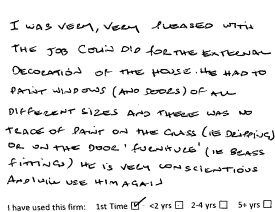 I WAS VERY, VERY PLEASED WITH
THE JOB COLIN DID FOR THE EXTERNAL
DECORATION OF THE HOUSE. HE HAD TO
PAINT WINDOWS (AND DOORS) OF ALL
DIFFERENT SIZES AND THERE WAS NO
TRACE OF PAINT ON THE GLASS (IE DRIPPING)
OR ON THE DOOR 'FURNITURE' (IE BRASS
FITTINGS) HE IS VERY CONSCIENTIOUS
AND WILL USE HIM AGAIN
I have used this firm: 1st Time ☑ <2 yrs ☐ 2-4 yrs ☐ 5+ yrs ☐